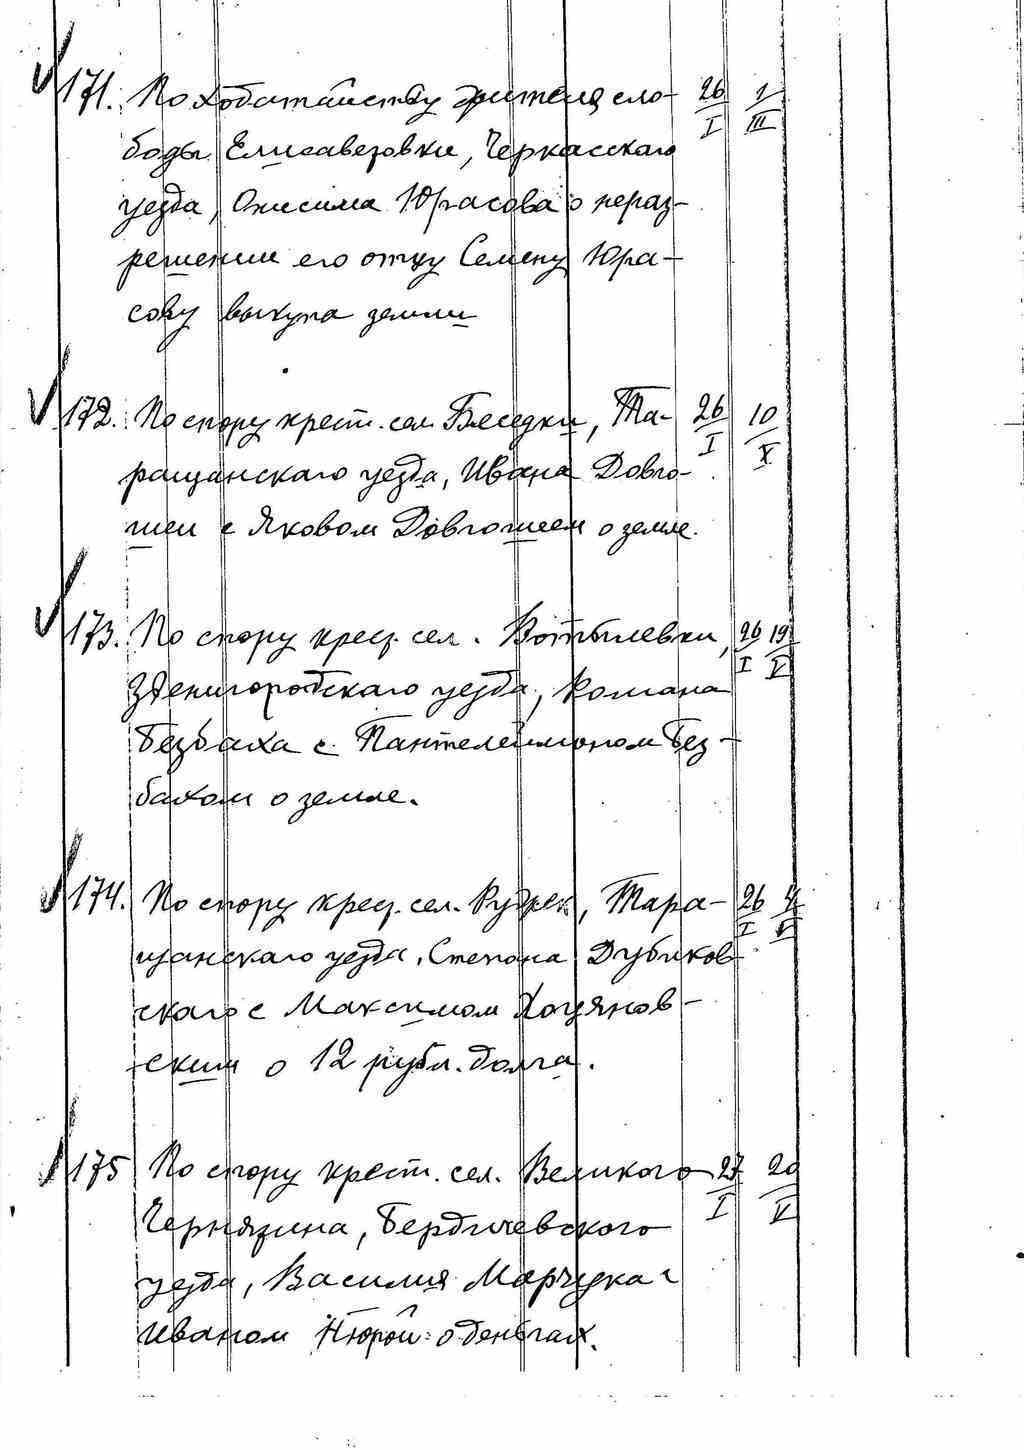 171. По ходатайству жителя сло- 26/I 1/III
боды Елисаветовки, Черкасского
уезда, Онисима Юрасова о нераз-
решении его отцу Семену Юра-
сову выкупа земли
172. По спору крест. сел. Беседки, Та- 26/I 10/X
ращанскаго уезда, Ивана Довго-
шеи с Яковом Довгошеем о земле.
173. По спору крест. сел. Вотылевки, 26/I 19/V
Звенигородскаго уезда, Романа
Безбаха с Пантелеймоном Без-
бахом о земле.
174. По спору крест. сел. Рудрек, Тара- 26/I 4/V
щанскаго уезда, Степана Дубиков-
скаго с Максимом Хоцянов-
ским о 12 рубл. долга.
175 По спору крест. сел. Великого 27/I 20/V
Чернятина, Бердичевского
уезда, Василия Марчука с
Иваном Нюрой о деньгах.